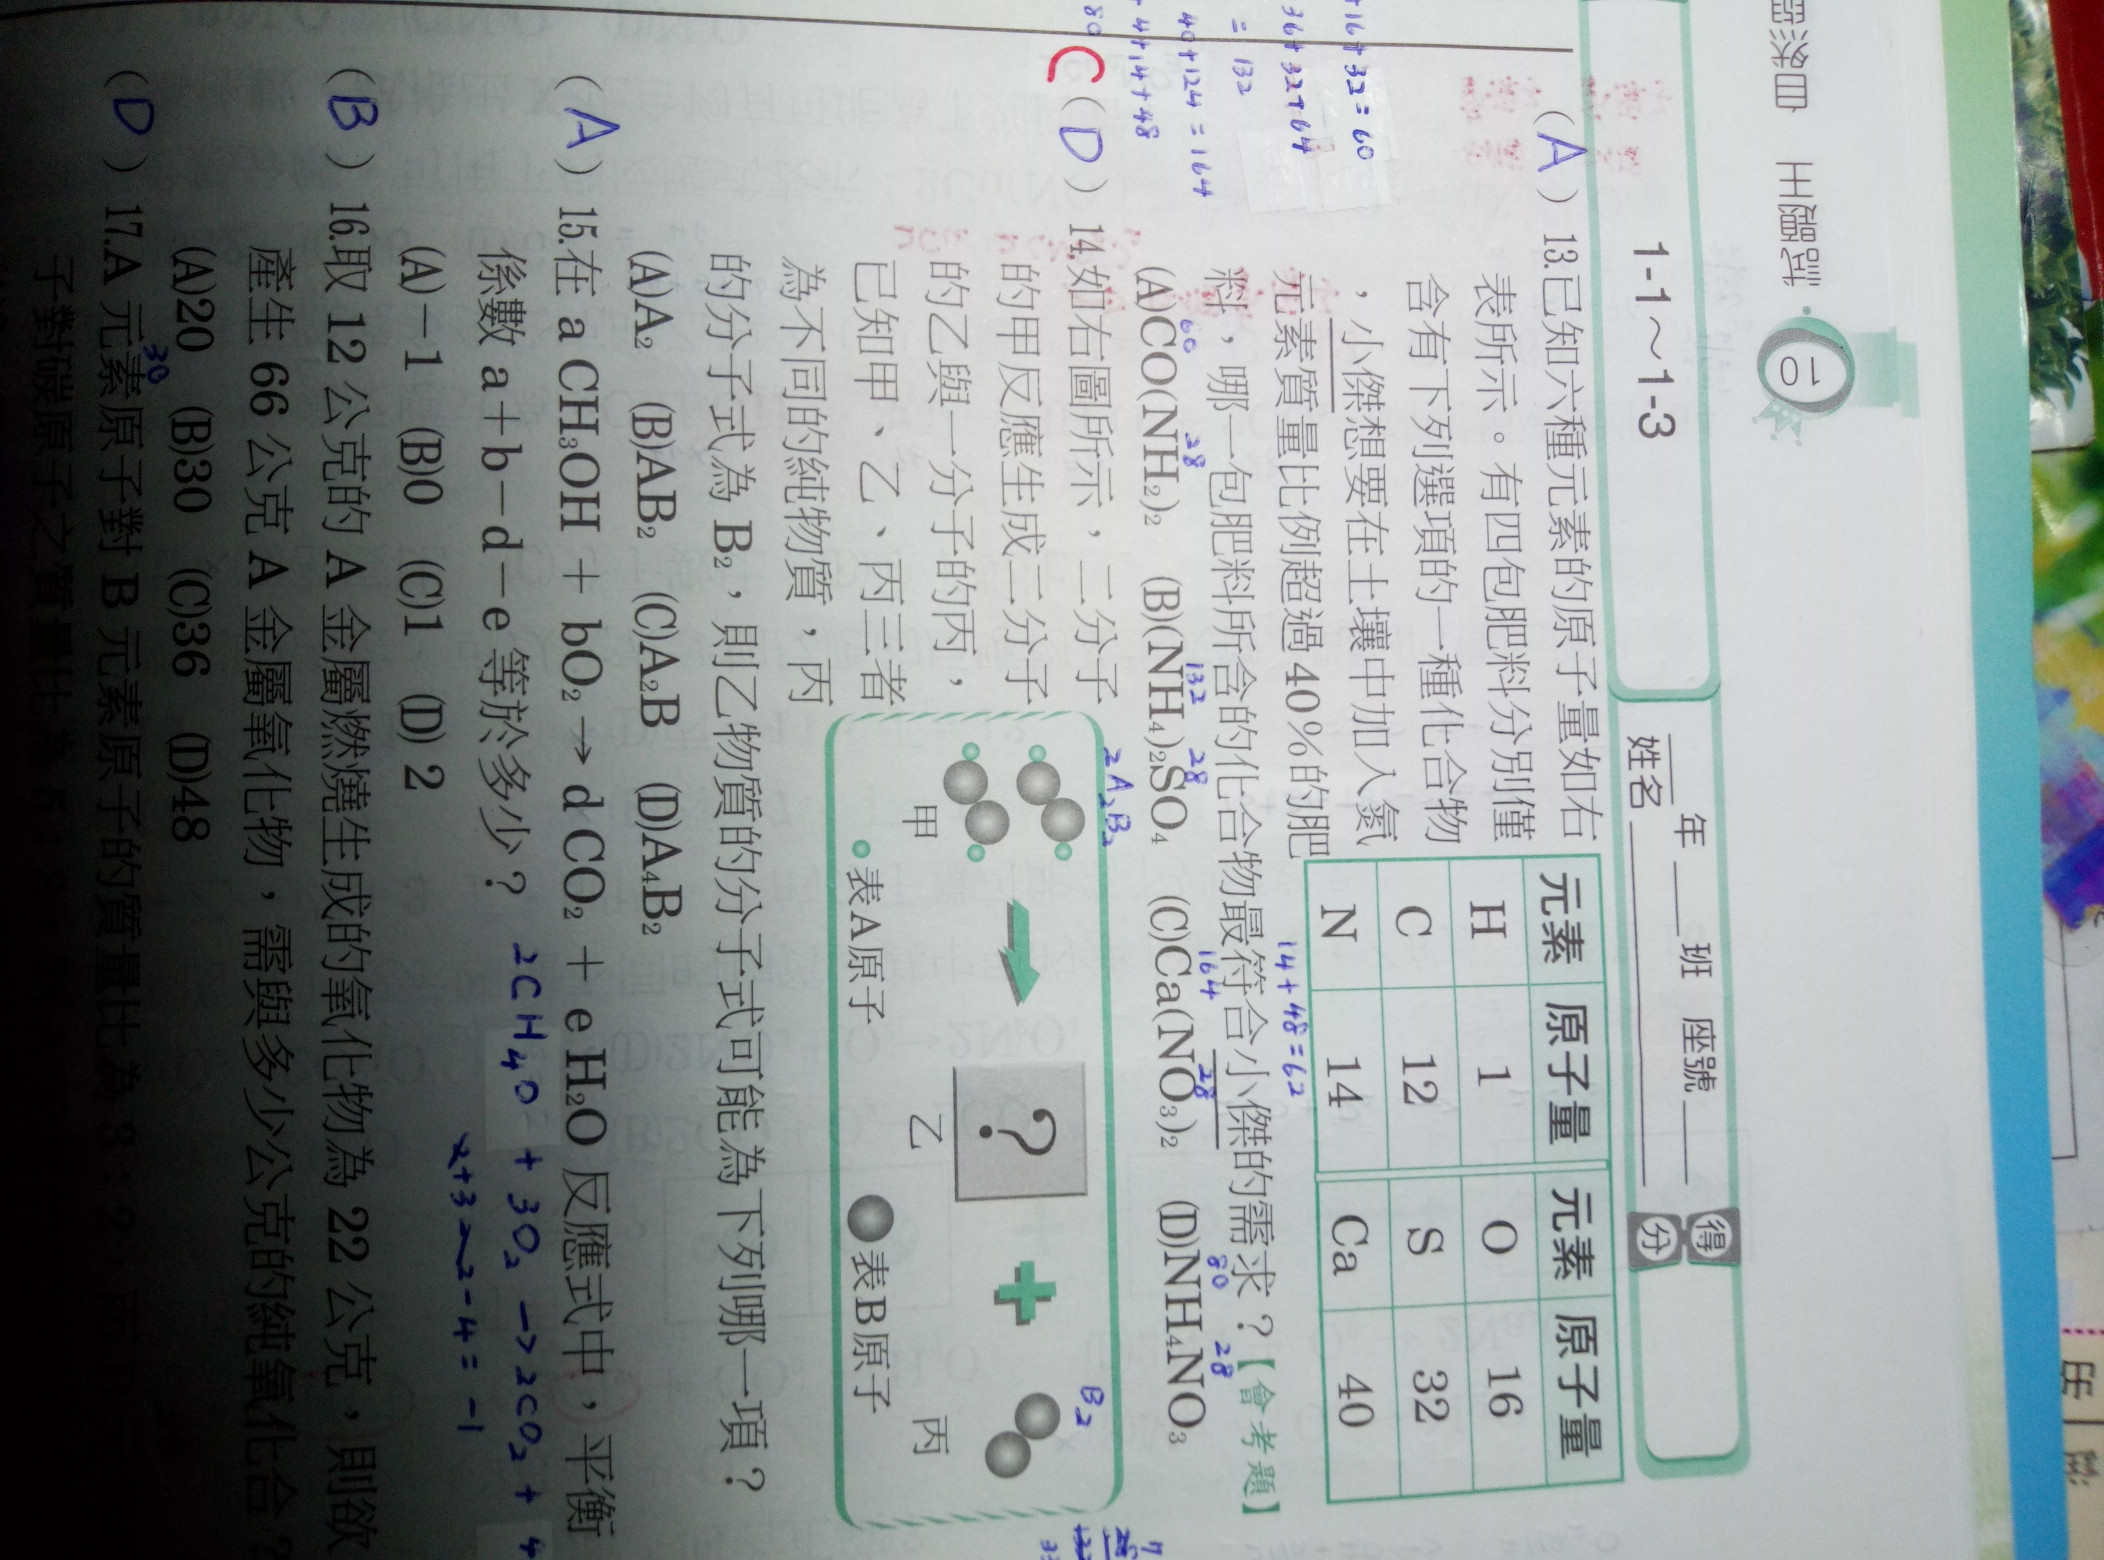 10
1-1～1-3
年 班 座號
姓名
得分
(A) 13.已知六種元素的原子量如右
表所示。有四包肥料分別僅
含有下列選項的一種化合物
，小傑想要在土壤中加入氮
元素質量比例超過40%的肥
料，哪一包肥料所含的化合物最符合小傑的需求？【會考題】
(A)CO(NH₂)₂ (B)(NH₄)₂SO₄ (C)Ca(NO₃)₂ (D)NH₄NO₃
60 28 132 28 164 28 80 28
元素 原子量 元素 原子量
H 1 O 16
C 12 S 32
N 14 Ca 40
14+48=62
+16+32=60
36+32+64
=132
40+124=164
+4+14+48
80
C (D) 14.如右圖所示，二分子
的甲反應生成三分子
的乙與一分子的丙，
已知甲、乙、丙三者
為不同的純物質，丙
的分子式為 B₂，則乙物質的分子式可能為下列哪一項？
(A)A₂ (B)AB₂ (C)A₂B (D)A₄B₂
2A₂B₂
B₂
?
甲 乙 丙
表A原子 表B原子
(A) 15.在 a CH₃OH + bO₂ → d CO₂ + e H₂O 反應式中，平衡
係數 a＋b－d－e 等於多少？
2CH₄O + 3O₂ → 2CO₂ + 4
(A)－1 (B)0 (C)1 (D) 2
2+3-2-4=-1
(B) 16.取 12 公克的 A 金屬燃燒生成的氧化物為 22 公克，則欲
產生 66 公克 A 金屬氧化物，需與多少公克的純氧化合？
(A)20 (B)30 (C)36 (D)48
30
(D) 17.A 元素原子對 B 元素原子的質量比為 3：2，而 B 元
子對碳原子之質量比為